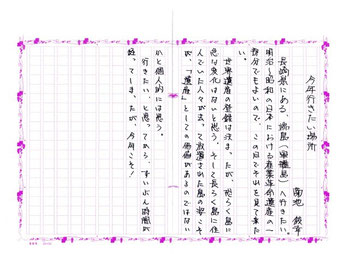 今年行きたい場所
菊池 毅
長崎県にある、端島（軍艦島）へ行きたい。
明治〜昭和の日本における産業革命遺産の一
部分でもよいので、この目でそれを見て来た
い。
世界遺産の登録は注ま、たが、恐らく島に
急な変化はないと思う。そして長らく島に住
んでいた人々が去って放置された島の姿こそ
が、「遺産」としての価値があるのではない
かと個人的には思う。
行きたい、と思ってから、ずいぶん時間が
経ってしまったが、今年こそ！